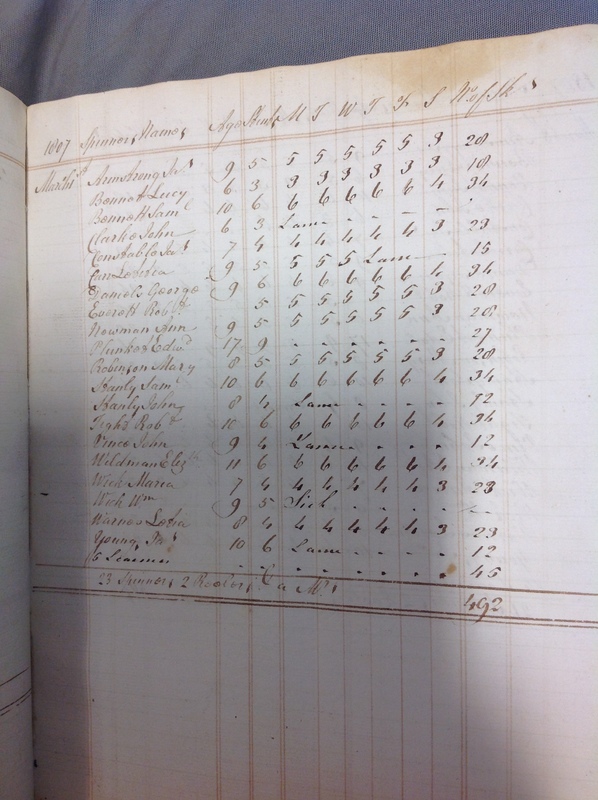 1807 Spinners Names Age Stint M T W T F S No of Sks
March 1st Armstrong Jas 9 5 5 5 5 5 5 3 28
Bennett Lucy 6 3 3 3 3 3 3 3 18
Bennett Saml 10 6 6 6 6 6 6 4 34
Clarke John 6 3 Lame - - - -
Constable Jas 7 4 4 4 4 4 4 3 23
9 5 5 5 5 Lame - - 15
Daniels George 9 6 6 6 6 6 6 4 34
Everett Robt 5 5 5 5 5 5 3 28
Newman Ann 9 5 5 5 5 5 5 3 28
Plunket Edwd 17 9 - - - - - - 27
Robinson Mary 8 5 5 5 5 5 5 3 28
Hanly Saml 10 6 6 6 6 6 6 4 34
Hanly John 8 4 Lame - - - - 12
Tight Robt 10 6 6 6 6 6 6 4 34
Prince John 9 4 Lame - - - - 12
Wildman Elizth 11 6 6 6 6 6 6 4 34
Wick Maria 7 4 4 4 4 4 4 3 23
Wick Wm 9 5 Sick - - - - - -
Warner 8 4 4 4 4 4 4 3 23
Young 10 6 Lame - - - - 12
5 Learners - - - - - - - 45
23 Spinners 2 Reelers & a Mrs
492